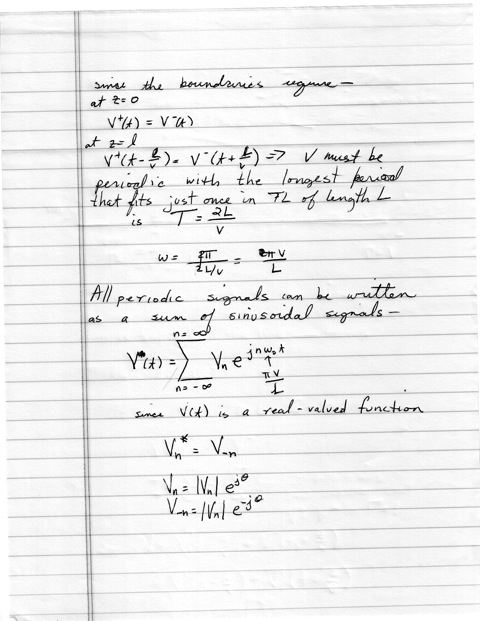 since the boundaries require —
at z=0
V⁺(t) = V⁻(t)
at z=l
V⁺(t - l/v) = V⁻(t + l/v) => V must be
periodic with the longest period
that fits just once in TL of length L
is T = 2L/V
ω = 2π/(2L/V) = πV/L
All periodic signals can be written
as a sum of sinusoidal signals —
n = ∞
V(t) = ∑ Vₙ e^{jnω₀t}
n = -∞
↑
πV/L
since V(t) is a real-valued function
Vₙ* = V₋ₙ
Vₙ = |Vₙ| e^{jθ}
V₋ₙ = |Vₙ| e^{-jθ}